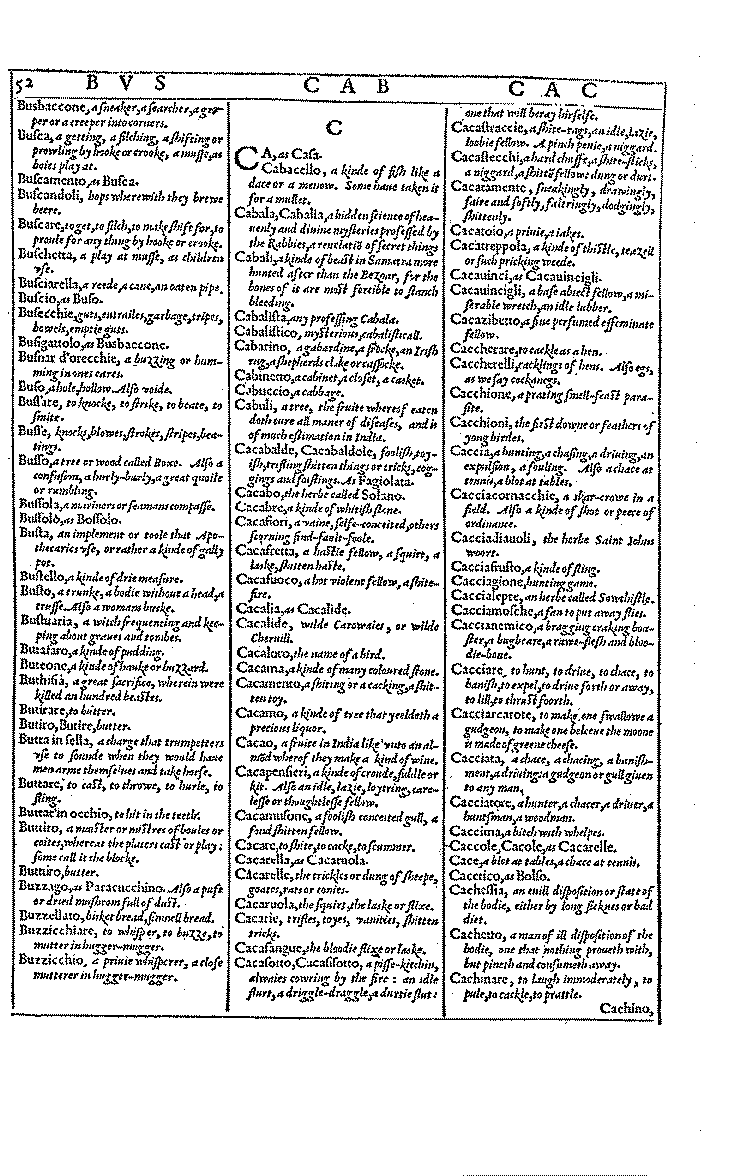 52 B V S C A B C A C
Busbaccone, a sneaker, a searcher, a gro-
per or a creeper into corners.
Busca, a getting, a filching, a shifting or
prowling by hooke or crooke, a musse, as
boies play at.
Buscamento, as Busca.
Buscandoli, hops wherewith they brewe
beere.
Buscare, to get, to filch, to make shift for, to
proule for any thing by hooke or crooke.
Buschetta, a play at musse, as children
vse.
Busciarella, a reede, a cane, an oaten pipe.
Buscio, as Buso.
Busecchie, guts, entrailes, garbage, tripes,
bowels, emptie guts.
Busigattolo, as Busbaccone.
Businar d'orecchie, a buzzing or hum-
ming in ones eares.
Buso, a hole, hollow. Also voide.
Bussare, to knocke, to strike, to beate, to
smite.
Busse, knocks, blowes, strokes, stripes, bea-
tings.
Busso, a tree or wood called Boxe. Also a
confusion, a hurly-burly, a great quoile
or rumbling.
Bussola, a mariners or seamans compasse.
Bussolo, as Bossolo.
Busta, an implement or toole that Apo-
thecaries vse, or rather a kinde of gally
pot.
Bustello, a kinde of drie measure.
Busto, a trunke, a bodie without a head, a
trusse. Also a womans buske.
Bustuaria, a witch frequenting and kee-
ping about graues and tombes.
Butafaro, a kinde of pudding.
Buteone, a kinde of hauke or buzzard.
Buthisia, a great sacrifice, wherein were
killed an hundred beastes.
Butirare, to butter.
Butiro, Butire, butter.
Butta in sella, a charge that trumpetters
vse to sounde when they would have
men arme themselues and take horse.
Buttare, to cast, to throwe, to hurle, to
fling.
Buttar in occhio, to hit in the teeth.
Buttiro, a master or mistres of boules or
coites, whereas the plaiers cast or play:
some call it the blocke.
Buttiro, butter.
Buzzago, as Paracucchino. Also a pufe
or dried mushrom full of dust.
Buzzellato, bisket bread, simnell bread.
Buzzicchiare, to whisper, to buzze, to
mutter in hugger-mugger.
Buzzicchio, a priuie whisperer, a close
mutterer in hugger-mugger.
C
CA, as Casa.
Cabacello, a kinde of fish like a
dace or a menow. Some haue taken it
for a mullet.
Cabala, Caballa, a hidden science of hea-
uenly and diuine mysteries professed by
the Rabbies, a reuelatiō of secret things
Cabali, a kinde of beast in Samatra more
hunted after than the Bezoar, for the
bones of it are most forcible to stanch
bleeding.
Cabalista, any professing Cabala.
Cabalistico, mysterious, cabalisticall.
Cabarino, a gabardine, a frocke, an Irish
rug, a shepherds cloke or cassocke.
Cabinetto, a cabinet, a closet, a casket.
Cabuccio, a cabbage.
Cabuli, a tree, the fruite whereof eaten
doth cure all maner of diseases, and is
of much estimation in India.
Cacabalde, Cacabaldole, foolish, toy-
ish, trifling shitten things or tricks, cog-
gings and foistings. As Fagiolata.
Cacabo, the herbe called Solano.
Cacabre, a kinde of whitish stone.
Cacafiori, a vaine, selfe-conceited, others
scorning find-fault-foole.
Cacafretta, a hastie fellow, a squirt, a
laske, shitten haste.
Cacafuoco, a hot violent fellow, a shite-
fire.
Cacalia, as Cacalide.
Cacalide, wilde Carowaies, or wilde
Cheruill.
Cacaloto, the name of a bird.
Cacama, a kinde of many coloured stone.
Cacamento, a shiting or a cacking, a shit-
ten toy.
Cacamo, a kinde of tree that yeeldeth a
precious liquor.
Cacao, a fruite in India like vnto an al-
mōd whereof they make a kind of wine.
Cacapensieri, a kinde of croude, fiddle or
kit. Also an idle, lazie, loytring, care-
lesse or thoughtlesse fellow.
Cacamusone, a foolish conceited gull, a
fond shitten fellow.
Cacare, to shite, to cacke, to scummer.
Cacarella, as Cacaruola.
Cacarelle, the trickles or dung of sheepe,
goates, rats or conies.
Cacaruola, the squirt, the laske or flixe.
Cacarie, trifles, toyes, vanities, shitten
tricks.
Cacasangue, the bloodie flixe or laske.
Cacasotto, Cacasisotto, a pisse-kitchin,
alwaies cowring by the fire: an idle
flurt, a driggle-draggle, a durtie slut:
one that will beray hirselfe.
Cacastraccie, a shite-rags, an idle, lazie,
loobie fellow. A pinch penie, a niggard.
Cacastecchi, a hard chuffe, a shite-sticks,
a niggard, a shitten fellow: dung or durt.
Cacatamente, sneakingly, drawingly,
faire and softly, faltringly, dodgingly,
shittenly.
Cacatoio, a priuie, a iakes.
Cacatreppola, a kinde of thistle, teazell
or such pricking weede.
Cacauinci, as Cacauincigli.
Cacauincigli, a base abiect fellow, a mi-
serable wretch, an idle lubber.
Cacazibetto, a fine perfumed effeminate
fellow.
Caccherare, to cackle as a hen.
Caccherelli, cacklings of hens. Also egs,
as we say cockanegs.
Cacchione, a prating smell-feast para-
site.
Cacchioni, the first downe or feathers of
yong birdes.
Caccia, a hunting, a chasing, a driuing, an
expulsion, a fouling. Also a chace at
tennis, a blot at tables.
Cacciacornacchie, a skar-crowe in a
field. Also a kinde of shot or peece of
ordinance.
Cacciadiauoli, the herbe Saint Johns
woort.
Cacciafrusto, a kinde of sling.
Cacciagione, hunting game.
Caccialepre, an herbe called Sowthistle.
Cacciamosche, a fan to put away flies.
Caccianemico, a bragging craking boa-
ster, a bugbeare, a rawe-flesh and bloo-
die-bone.
Cacciare, to hunt, to driue, to chace, to
banish, to expel, to driue forth or away,
to kill, to thrust foorth.
Cacciarcarote, to make one swallowe a
gudgeon, to make one beleeue the moone
is made of greene cheese.
Cacciata, a chace, a chacing, a banish-
ment, a driuing: a gudgeon or gull giuen
to any man.
Cacciatore, a hunter, a chacer, a driuer, a
huntsman, a woodman.
Caccima, a bitch with whelpes.
Caccole, Cacole, as Cacarelle.
Cace, a blot at tables, a chace at tennis.
Cacetico, as Bolso.
Cachessia, an euill disposition or state of
the bodie, either by long sicknes or bad
diet.
Cachetto, a man of ill disposition of the
bodie, one that nothing proueth with,
but pineth and consumeth away.
Cachinare, to laugh immoderately, to
pule, to cackle, to prattle.
Cachino,